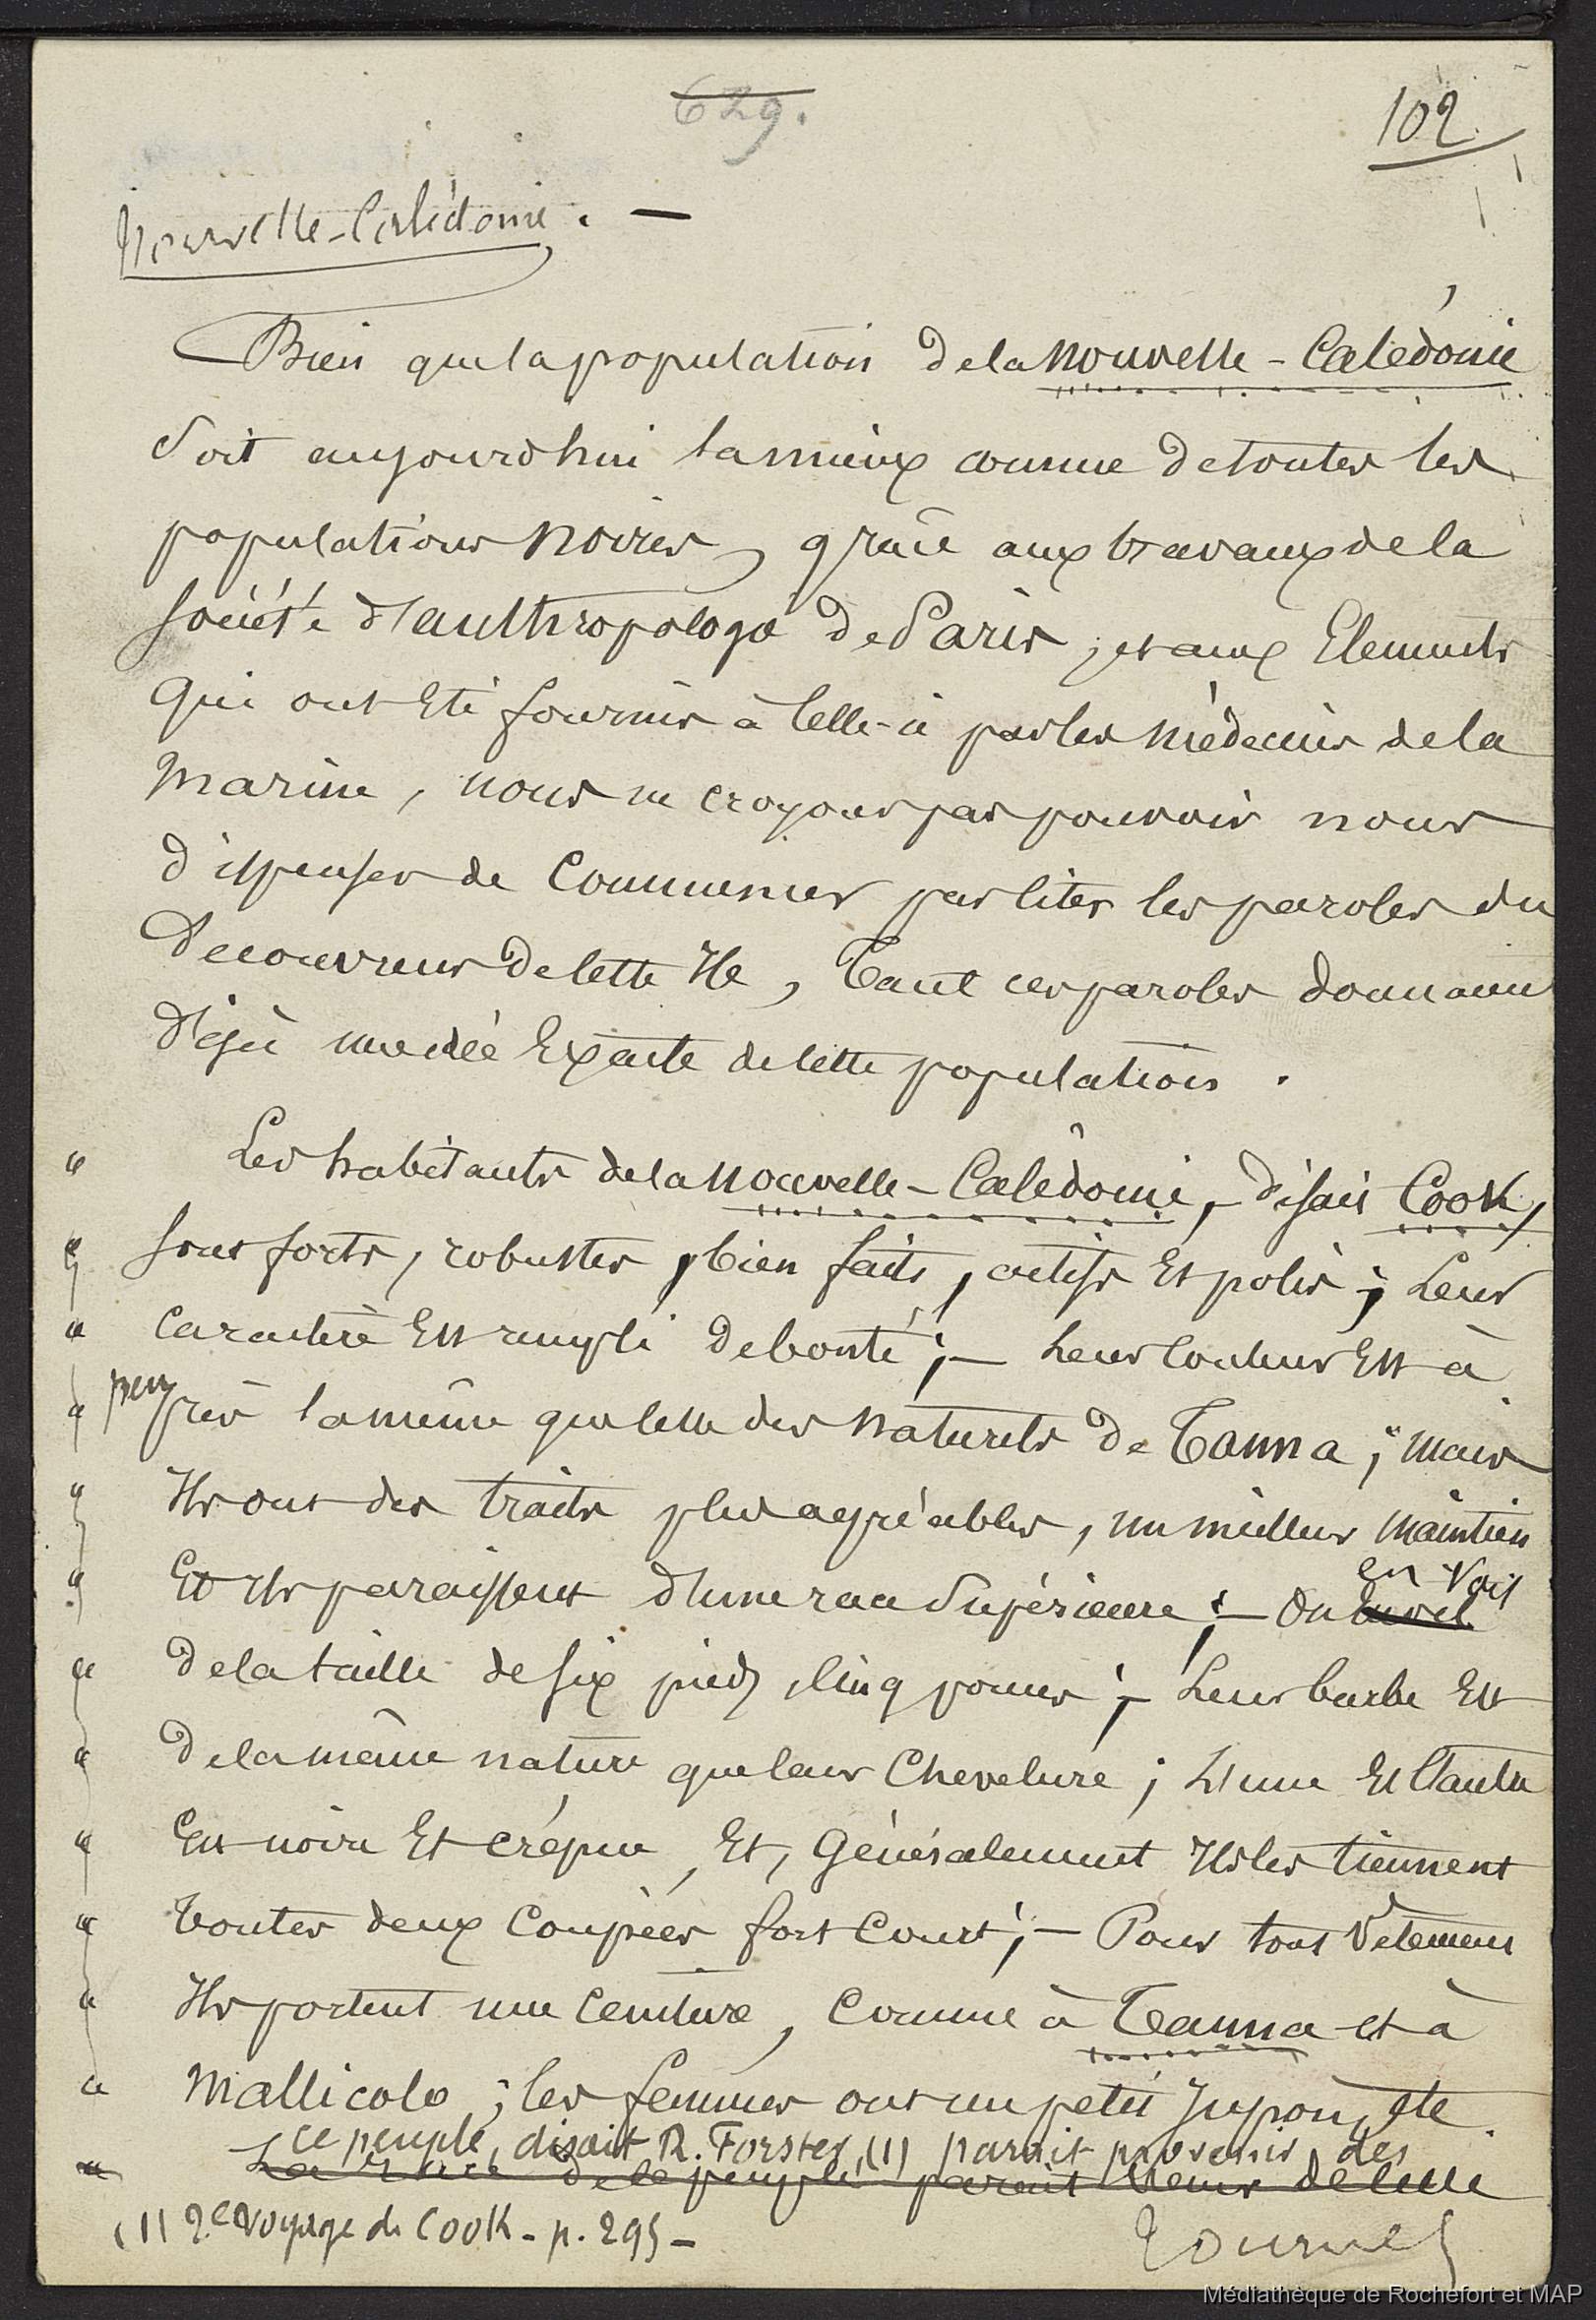 629.
102
Nouvelle-Calédonie. —
Bien que la population de la Nouvelle-Calédonie
Soit aujourdhui la mieux connue de toutes les
populations Noires, grâce aux travaux de la
Société d'anthropologie de Paris, et aux Elements
Qui ont Eté fournis à Celle-ci par les Médecins de la
Marine, nous ne croyons pas pouvoir nous
dispenser de Commencer par Citer les paroles du
Decouvreur de Cette Ile, Tant ces paroles donnaient
déjà une idée Exacte de Cette population.
" Les habitants de la Nouvelle-Calédonie, disait Cook,
" Sont forts, robustes, bien faits, actifs Et polis; Leur
" Caractère Est rempli de bonté; — Leur Couleur Est à
" peu près la même que Celle des Naturels de Tanna; Mais
" Ils ont des traits plus agréables, un meilleur Maintien
" Et Ils paraissent d'une race Supérieure; — On en voit
" De la taille de Six pieds, Cinq pouces; — Leur barbe Est
" De la même nature que leur Chevelure; L'une Et l'autre
" Est noire Et crépue, Et, Généralement Ils les tiennent
" Toutes deux Coupées fort Court; — Pour tout Vêtement
" Ils portent une Ceinture, Comme à Tanna et à
" Mallicolo; les femmes ont un petit Jupon, etc.
Ce peuple, disait R. Forster, (1) parait provenir des
" La race de Ce peuple parait Venir de Celle
(1) 2e Voyage de Cook - p. 295 -
Tournez
Médiathèque de Rochefort et MAP